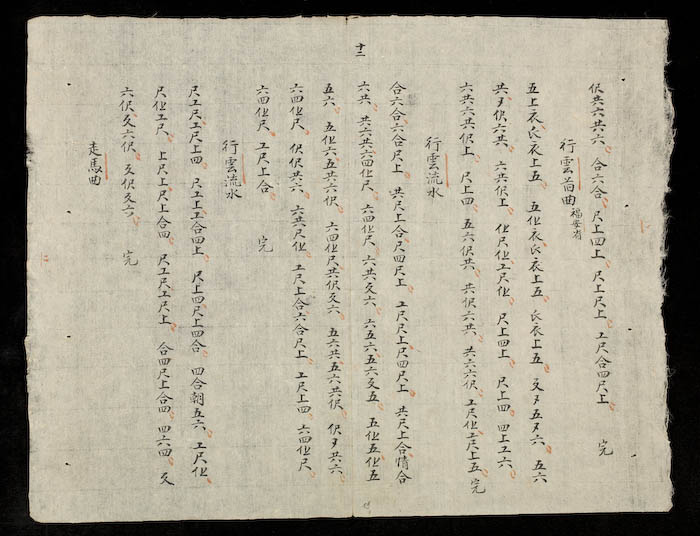 十二
伬共六共六 合六合 尺上四上 尺上尺上 工尺合四尺上 完
行雲首曲 福安省
五上衣氏衣上五 五仩衣氏衣上五 氏衣上五 五六
共 伬六共 六共伬上 仩尺仩工尺仩 尺上四上 尺上四 四上工六
六共六共六共伬上 尺上四 五六伬共 共伬六共 共六六伬 工尺仩工尺上五 完
行雲流水
合六合六合尺上 共尺上合尺四尺上 工尺尺上尺四尺上 共尺上合情合
六共 共六共六四仩尺 六四仩尺 六共六 六五六五六五 五仩五仩五
五六 五仩六五共六伬 六四仩尺共伬六 五六共五六共伬 伬共六
六四仩尺 伬伬共六 六共尺仩 工尺上合六合尺上 工尺上四 六四仩尺
六四仩尺 工尺上合 完
行雲流水
尺工尺工尺上四 尺工上工合四上 尺上四尺上四合 四合朝五六 工尺仩
尺仩工尺 上尺上尺上合四 尺工尺工尺上 合四尺上合四 四六四
六伬六伬 伬六 完
走馬曲